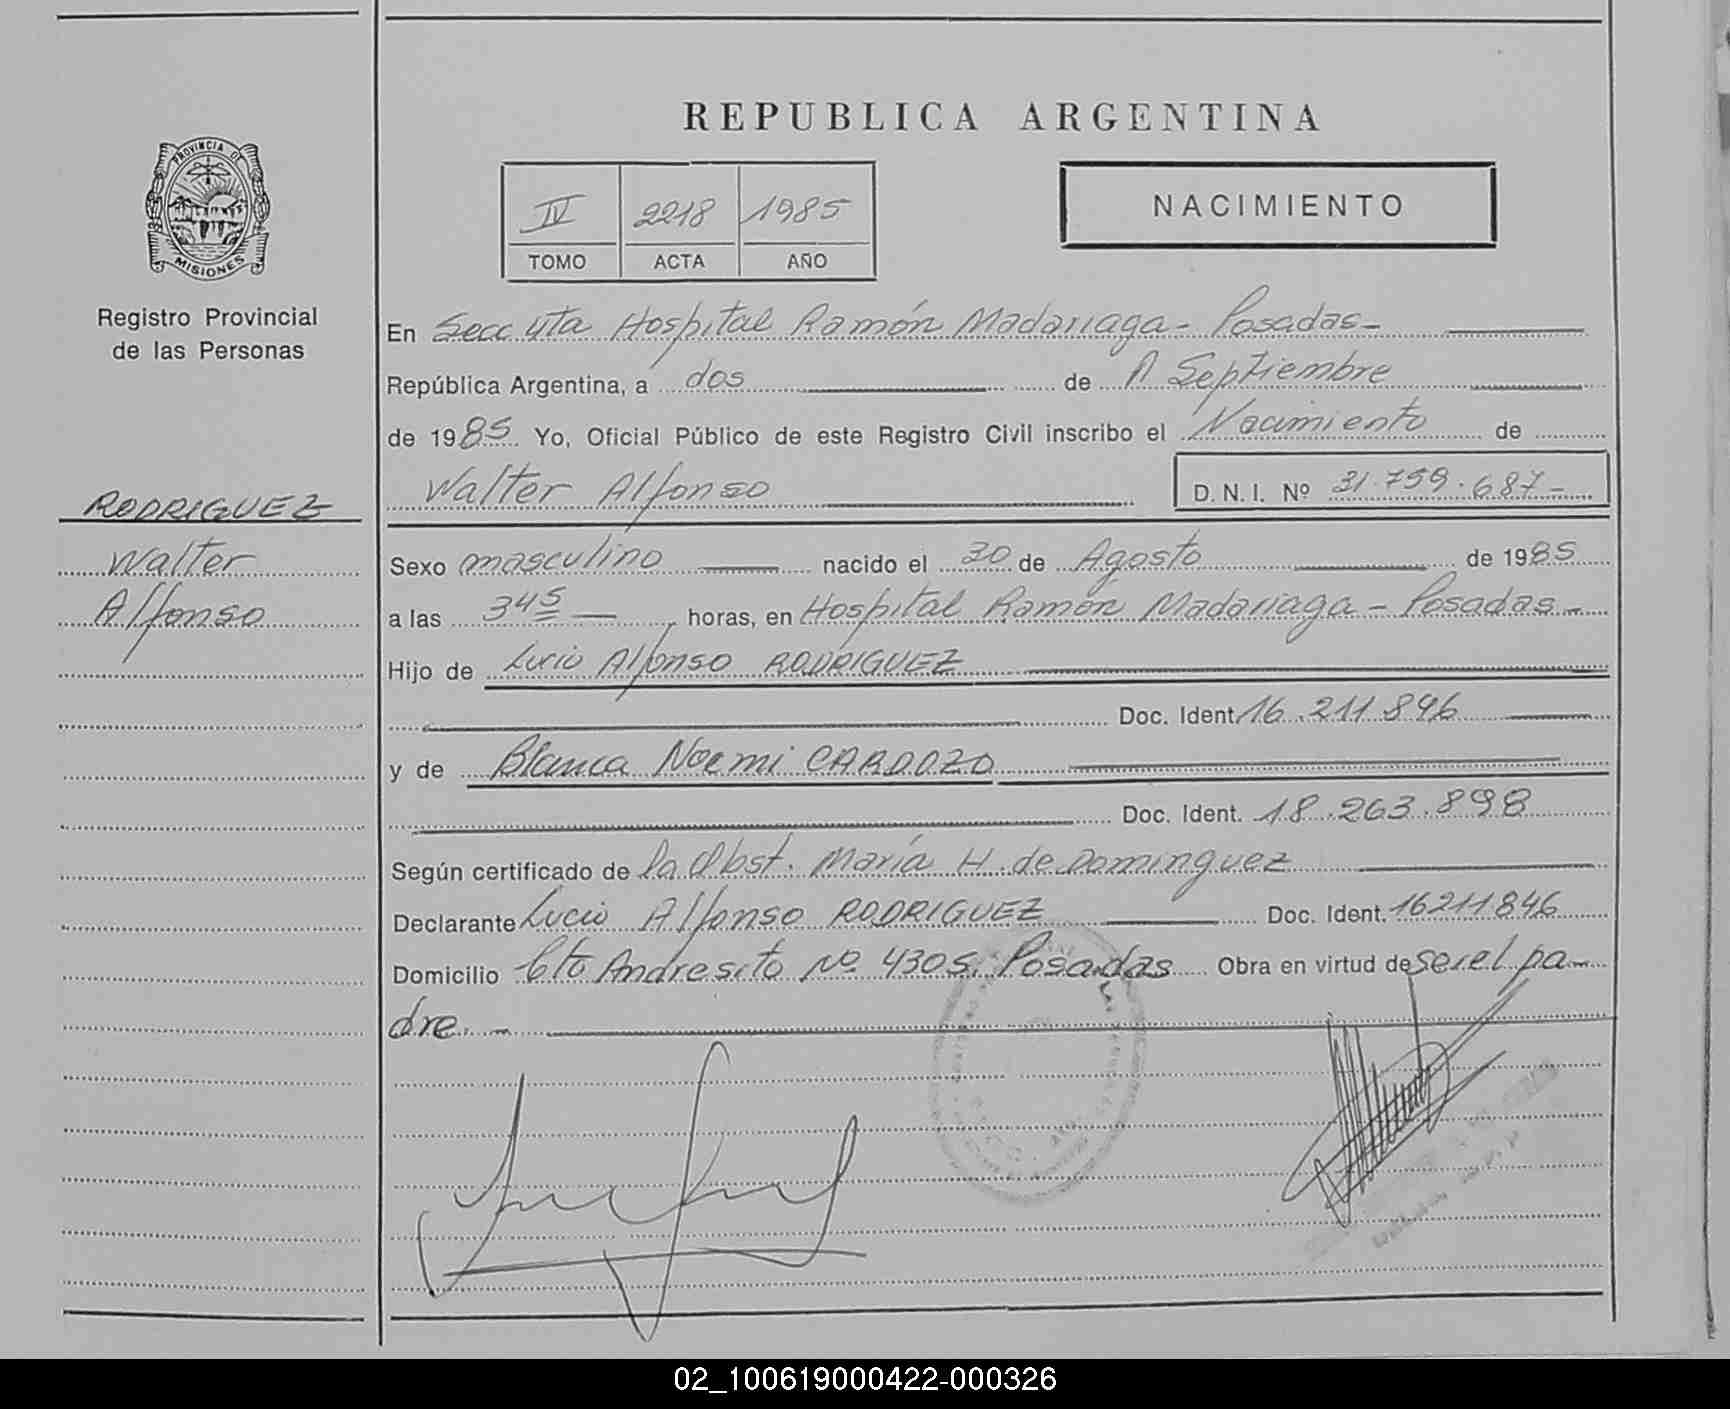 REPUBLICA ARGENTINA
PROVINCIA DE
MISIONES
Registro Provincial
de las Personas
IV 2218 1985
TOMO ACTA AÑO
NACIMIENTO
En Secc 4ta Hospital Ramón Madariaga - Posadas -
República Argentina, a dos de Septiembre
de 1985 Yo, Oficial Público de este Registro Civil inscribo el Nacimiento de
Walter Alfonso D. N. I. Nº 31.759.687-
RODRIGUEZ
Walter
Alfonso
Sexo masculino nacido el 30 de Agosto de 1985
a las 3 45 — horas, en Hospital Ramón Madariaga - Posadas -
Hijo de Lucio Alfonso RODRIGUEZ
Doc. Ident. 16.211.846
y de Blanca Noemi CARDOZO
Doc. Ident. 18.263.898
Según certificado de la Obst. María H. de Dominguez
Declarante Lucio Alfonso RODRIGUEZ Doc. Ident. 16211846
Domicilio Andresito Nº 4305. Posadas Obra en virtud de ser el pa-
dre. -
02_100619000422-000326